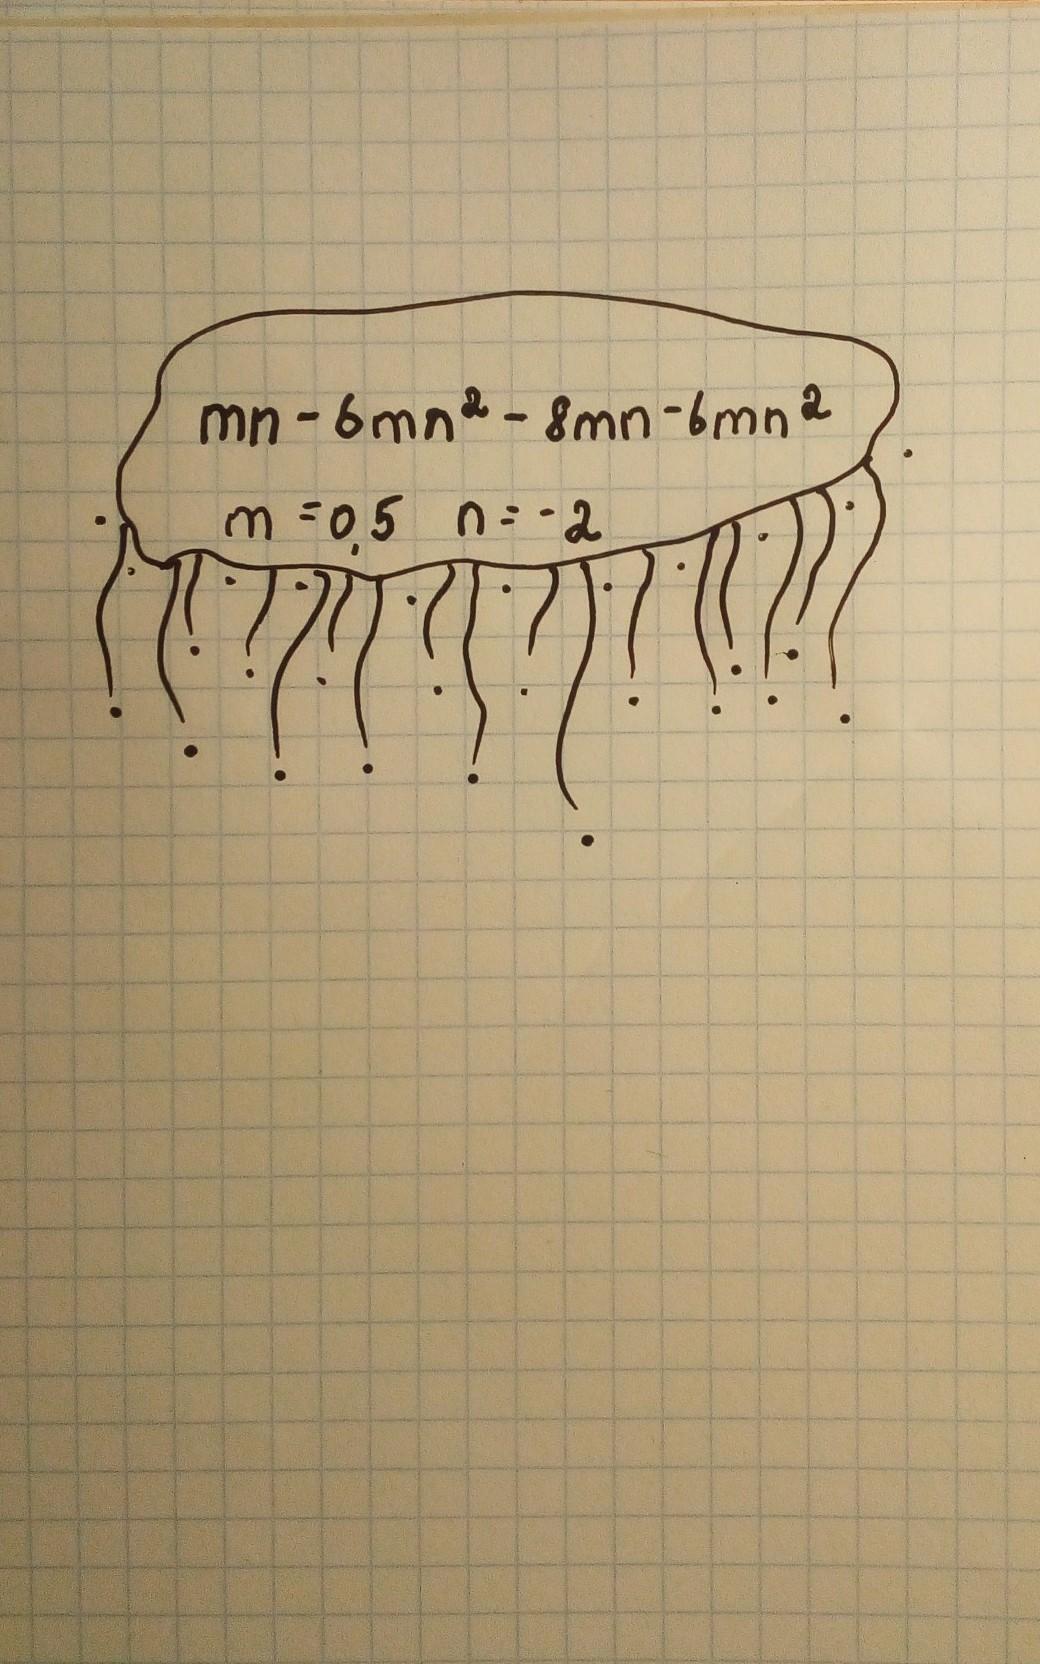 mn - 6mn² - 8mn - 6mn²
m = 0,5 n = -2